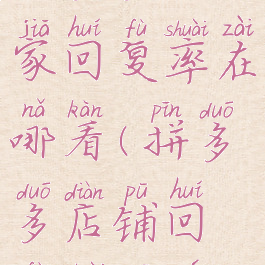 jiā huí fù shuài zài
家回复率在
nǎ kàn pīn duō
哪看(拼多
duō diàn pū huí
多店铺回